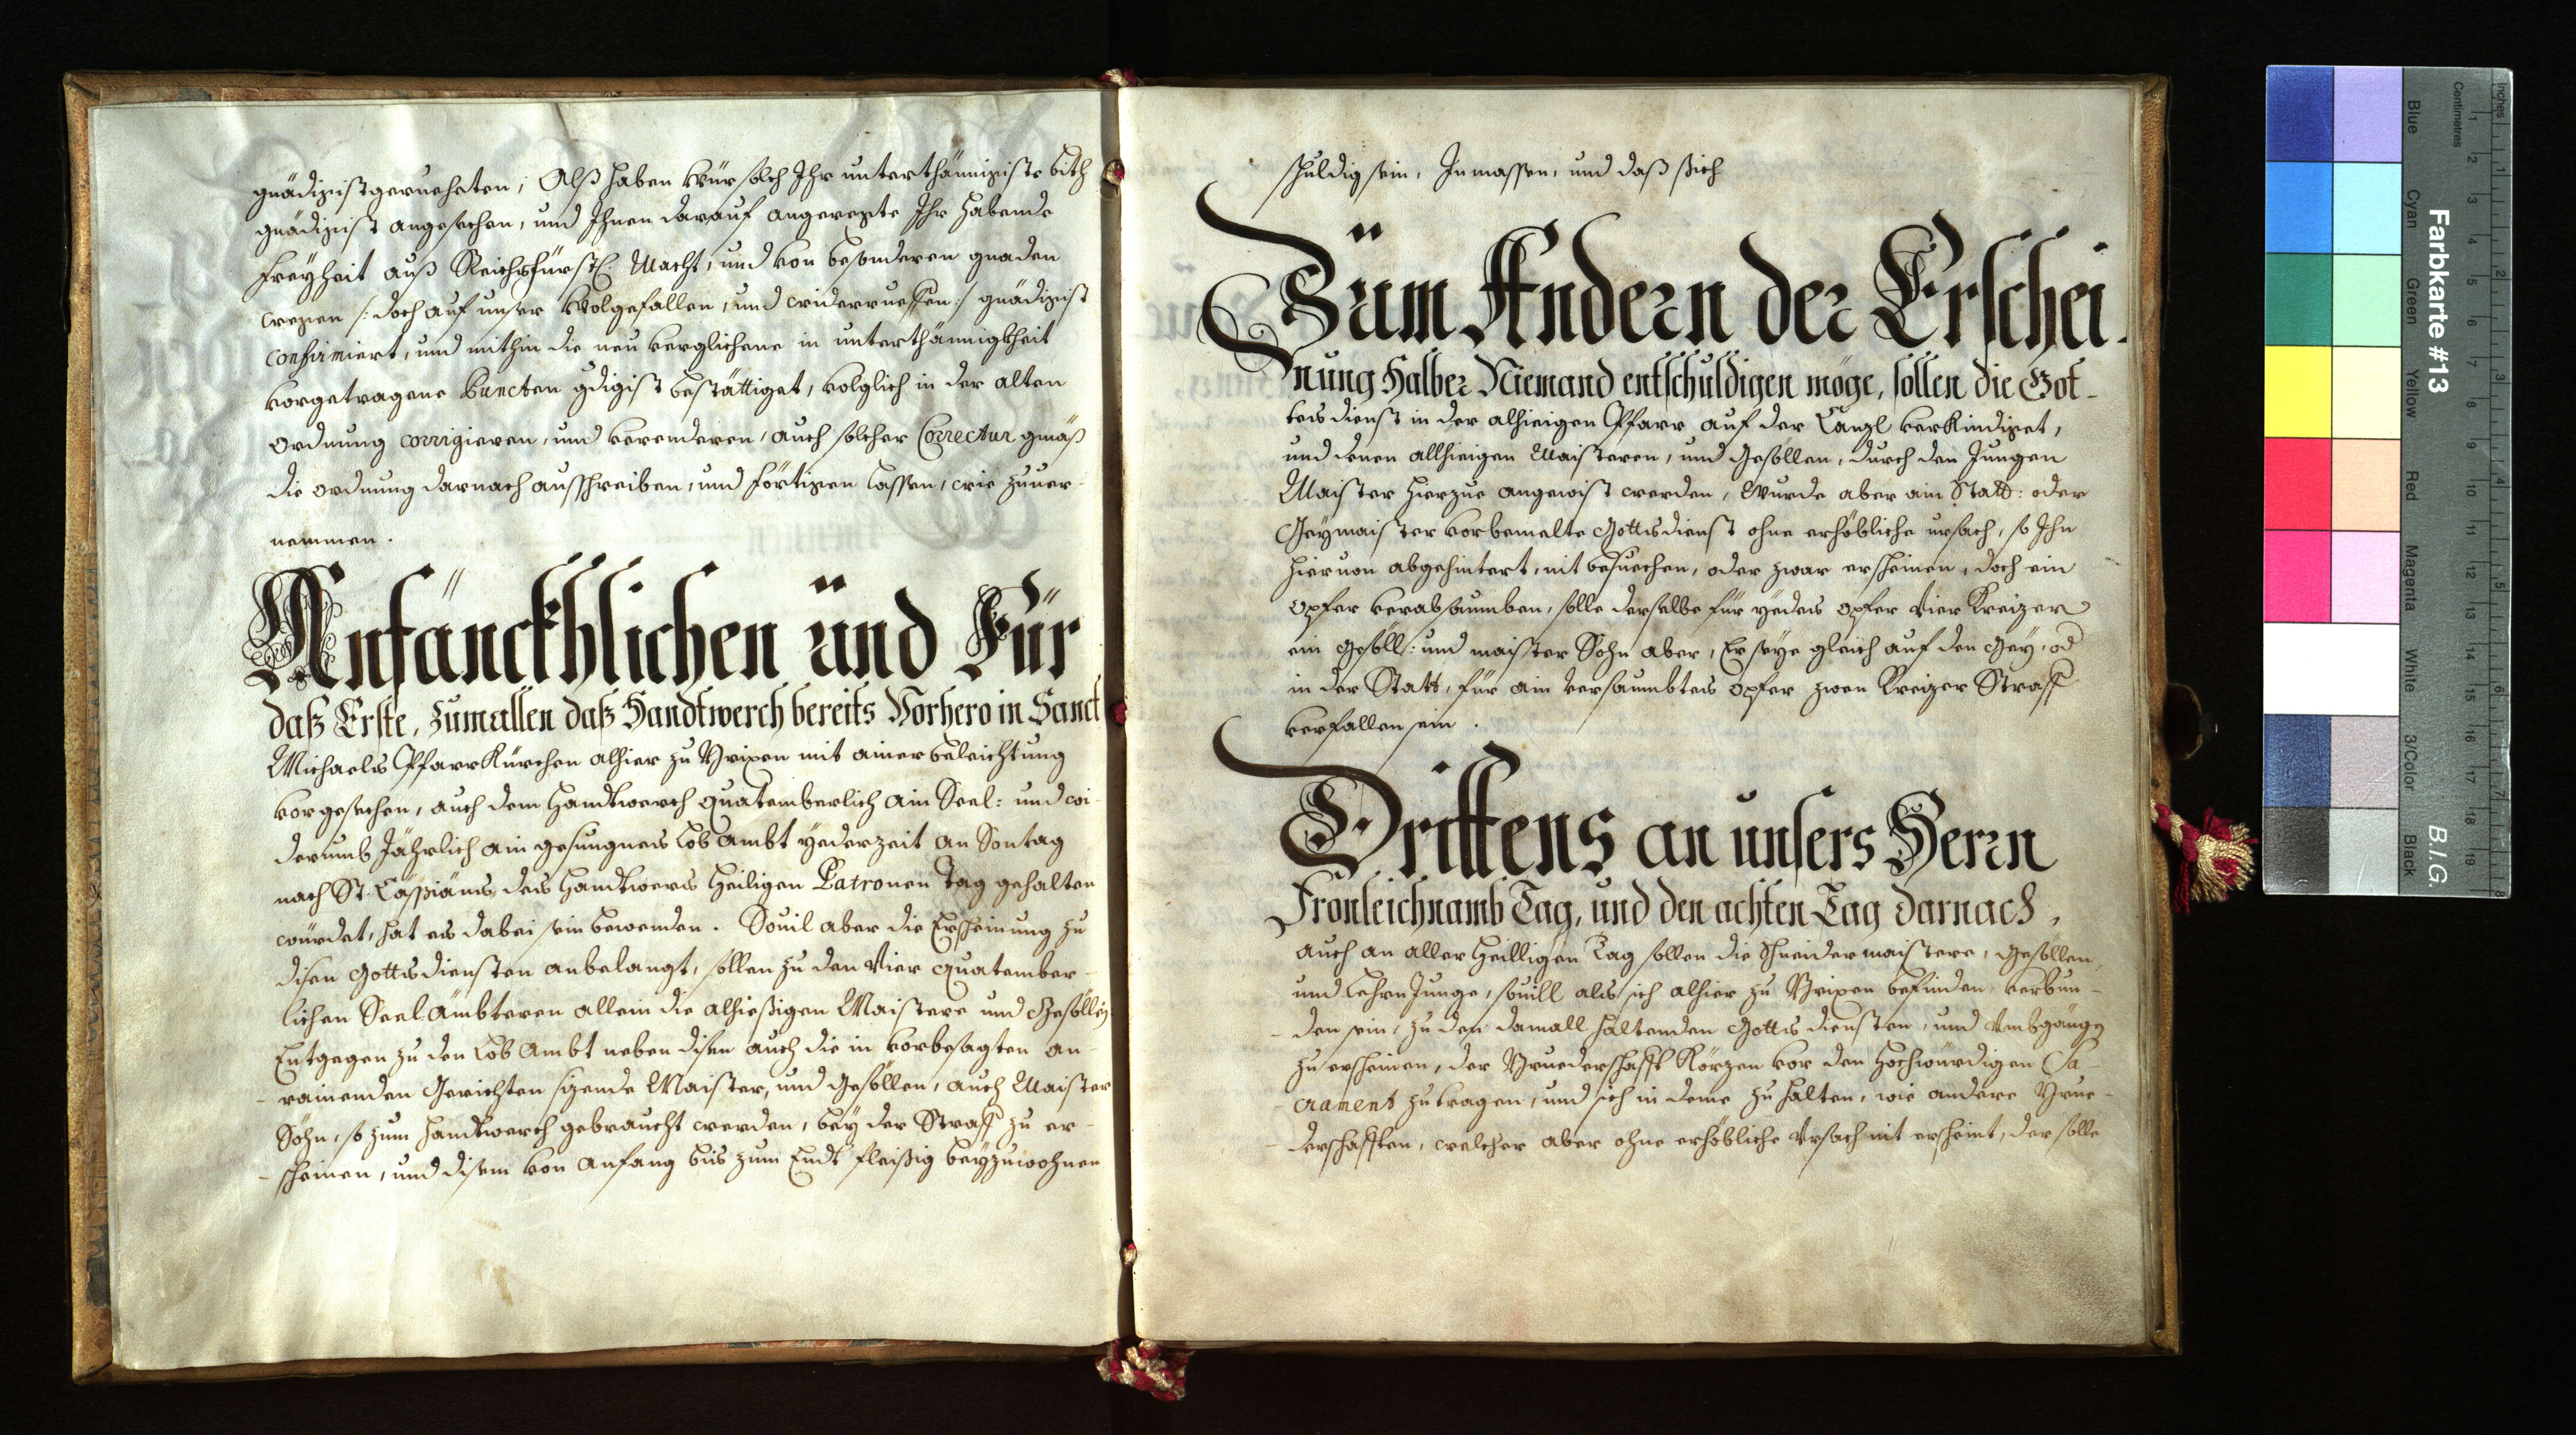 gnädigist geruheten, Alß haben wür solch Ihr unterthännigiste bith
gnädigist angesechen, und Ihnen darauf angeregte Ihr habende
freyheit auß Reichsfürstl. Macht, und von besonderen gnaden
wegen /: doch auf unser wolgefallen, und widerrueffen :/ gnädigist
confirmiert, und mithin die neu verglichene in unterthännigkheit
vorgetragene Puncten gdigist bestättiget, volglich in der alten
ordnung corrigieren, und verenderen, auch solcher Correctur gmäß
die ordnung darnach ausschreiben, und förtigen lassen, wie zuuer-
nemmen.
Anfänckhlichen und Für
daß Erste, zumallen daß Handtwerch bereits Vorhero in Sanct
Michaels Pfarr Kürchen alhier zu Brixen mit ainer beleichtung
vorgesechen, auch dem Handtwerch quatemberlich ain Seel: und wi-
derumb Jährlich ain gesungnes Lob Ambt yederzeit an Sontag
nach St. Cassiäns des Handtwercs Heiligen Patronen Tag gehalten
würdet, hat es dabei sein bewenden. Souil aber die Erscheinung zu
disen Gottsdiensten anbelangt, sollen zu den Vier quatember-
lichen Seel Ämbteren allein die alhießigen Maistere und Gesöllen
Entgegen zu den Lob Ambt neben disen auch die in vorbesagten an-
- rainenden Gerichten sizende Maister, und Gesöllen, auch Maister
Söhn, so zum Handtwerch gebraucht werden, bey der Straff zu er-
- scheinen, und disem von Anfang bis zum Endt fleißig beyzuwohnen
schuldig sein, Inmassen, und daß sich
Züm Andern der Erschei-
nung Halber Niemand entschuldigen möge, sollen die Got-
tes dienst in der alhieigen Pfarr auf der Canzl verkindiget,
und denen allhieigen Maisteren, und Gesöllen, durch den Jungen
Maister hierzue angewist werden, Wurde aber ain Statt: oder
Geymaister vorbemelte Gottsdienst ohne erhöbliche ursach, so Ihn
hieruon abgehintert, nit besuechen, oder zwar erscheinen, doch ein
opfer verabsaumben, solle derselbe für yedes opfer Vier Kreizer
ein Gesöll: und maister Sohn aber, Er seye gleich auf den Gey, od
in der Statt, für ain versaumbtes opfer zwen Kreizer Straff
verfallen sein.
Drittens an unsers Herrn
Fronleichnamb Tag, und den achten Tag darnach,
auch an aller Heilligen Tag sollen die Schneidermaistere, Gesöllen,
und Lehrn Junge, souill als sich alhier zu Brixen befinden verbun-
- den sein, zu den damall haltenden Gotts diensten, und Vmbgäng
zu erscheinen, der Bruederschafft Körzen vor den Hochwürdigen Sa-
- crament zu tragen, und sich in deme zu halten, wie andere Brue-
- derschafften, welcher aber ohne erhöbliche Vrsach nit erscheint, der solle
Farbkarte #13
B.I.G.
Blue
Cyan
Green
Yellow
Red
Magenta
White
3/Color
Black
Centimetres
Inches
1 2 3 4 5 6 7 8 9 10 11 12 13 14 15 16 17 18 19
1 2 3 4 5 6 7 8